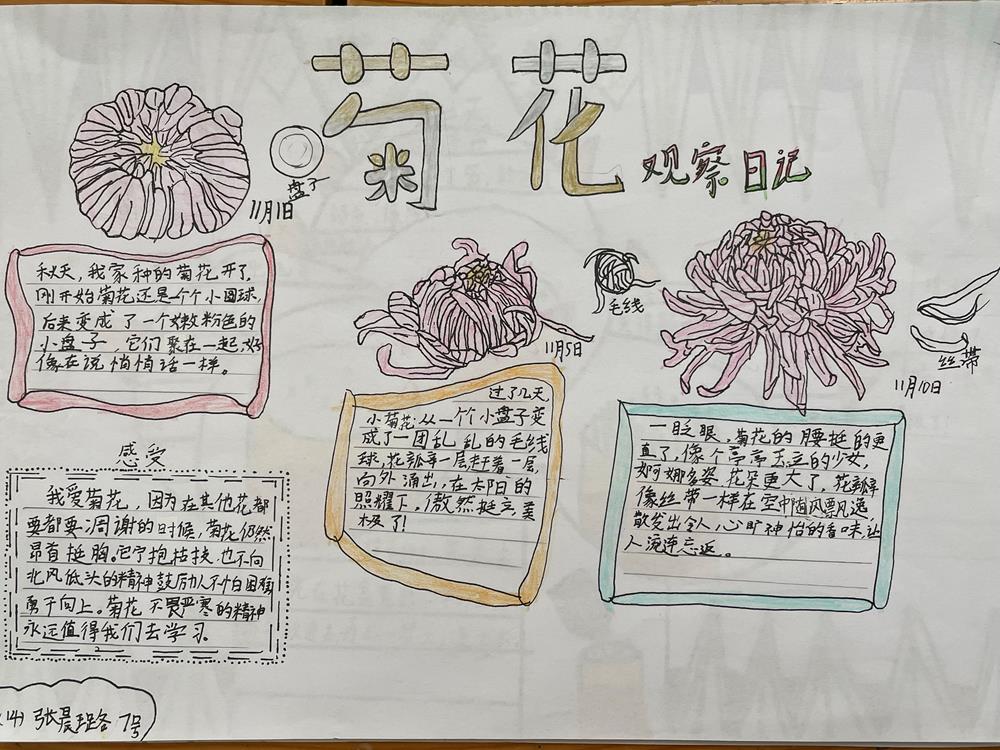 菊花
观察日记
盘子
11月1日
秋天,我家种的菊花开了,
刚开始菊花还是个个小圆球,
后来变成了一个嫩粉色的
小盘子,它们聚在一起,好
像在说悄悄话一样。
毛线
11月5日
过了几天,
小菊花从一个个小盘子变
成了一团乱乱的毛线
球,花瓣一层赶着一层,
向外涌出,在太阳的
照耀下,傲然挺立美
极了!
丝带
11月10日
一眨眼,菊花的腰挺的更
直了,像个亭亭玉立的少女,
婀娜多姿花朵更大了,花瓣
像丝带一样在空中随风飘逸,
散发出令人心旷神怡的香味,让
人流连忘返。
感受
我爱菊花,因为在其他花都
要都要凋谢的时候,菊花仍然
昂首挺胸。它宁抱枯枝,也不向
北风低头的精神鼓励人不怕困难
勇于向上。菊花不畏严寒的精神
永远值得我们去学习。
张晨 7号